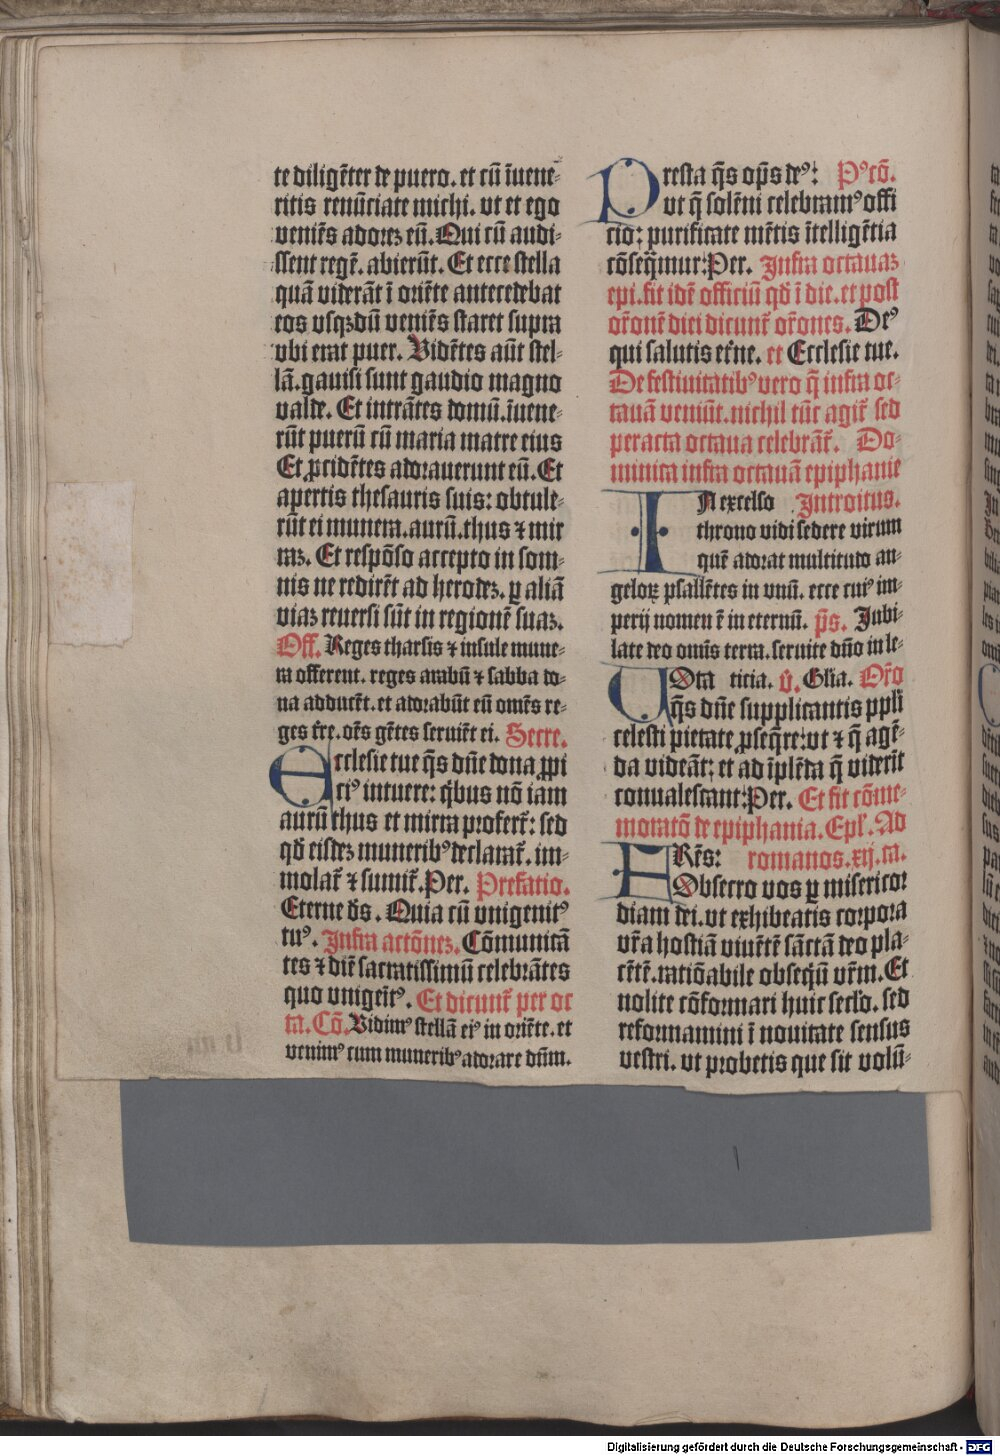 te diligẽter de puero. et cũ ĩuene-
ritis renũciate michi. vt et ego
veniẽs adorez eũ. Qui cũ audi-
ssent regẽ. abierũt. Et ecce stella
quã viderãt ĩ oriẽte antecedebat
eos vsqzdũ veniẽs staret supra
vbi erat puer. Vidẽtes aũt stel-
lã. gauisi sunt gaudio magno
valde. Et intrãtes domũ. ĩuene-
rũt puerũ cũ maria matre eius
Et ꝓcidẽtes adorauerunt eũ. Et
apertis thesauris suis: obtule-
rũt ei munera. aurũ. thus ⁊ mir
raz. Et respõso accepto in som-
nis ne redirẽt ad herodez. ꝑ aliã
viaz reuersi sũt in regionẽ suaz.
Off. Reges tharsis ⁊ insule mune-
ra offerent. reges arabũ ⁊ sabba do-
na adducẽt. et adorabũt eũ omẽs re-
ges t̃re. oẽs gẽtes seruiẽt ei. Secre.
Ecclesie tue q̃s dñe dona ꝓpi
ciꝰ intuere: q̃bus nõ iam
aurũ thus et mirra profert̃: sed
qd̃ eisdez muneribꝰ declarat̃. im-
molat̃ ⁊ sumit̃. Per. Prefatio.
Eterne ds̃. Quia cũ vnigenitꝰ
tuꝰ. Infra actõnez. Cõmunicã
tes ⁊ diẽ sacratissimũ celebrãtes
quo vnigeñtꝰ. Et dicunt̃ per oc
ta. Cõ. Vidimꝰ stellã eiꝰ in oriẽte. et
venimꝰ cum muneribꝰ adorare dñm.
Presta q̃s op̃s deꝰ: Pꝰcõ.
vt q̃ solẽni celebramꝰ offi
cio: purificate mẽtis ĩtelligẽtia
cõseq̃mur: Per. Infra octauaz
epi. fit idẽ officiũ qd̃ ĩ die. et post
or̃onẽ diei dicunt̃ or̃ones. Deꝰ
qui salutis et̃ne. et Ecclesie tue.
De festiuitatibꝰ vero q̃ infra oc-
tauã veniũt. nichil tũc agit̃ sed
peracta octaua celebrãt̃. Do-
minica infra octauã epiphanie
IN excelso Introitus.
throno vidi sedere virum
quẽ adorat multitudo an-
geloꝝ psallẽtes in vnũ. ecce cuiꝰ im-
perij nomen ẽ in eternũ. p̃s. Jubi-
late deo omĩs terra. seruite dño in le-
VOta ticia. v̉. Glĩa. Or̃o
q̃s dñe supplicantis ppl̃i
celesti pietate ꝓseq̃re: vt ⁊ q̃ agẽ-
da videãt: et ad ĩplẽda q̃ viderĩt
conualescant: Per. Et fit cõme-
moratõ de epiphania. Epl̃. Ad
FRẽs: romanos. xij. ca.
Obsecro vos ꝑ misericor
diam dei. vt exhibeatis corpora
vr̃a hostiã viuẽtẽ sãctã deo pla-
cẽtẽ. ratiõabile obseq̃ũ vr̃m. Et
nolite cõformari huic secl̃o. sed
reformamini ĩ nouitate sensus
vestri. vt probetis que sit volũ-
Digitalisierung gefördert durch die Deutsche Forschungsgemeinschaft - DFG